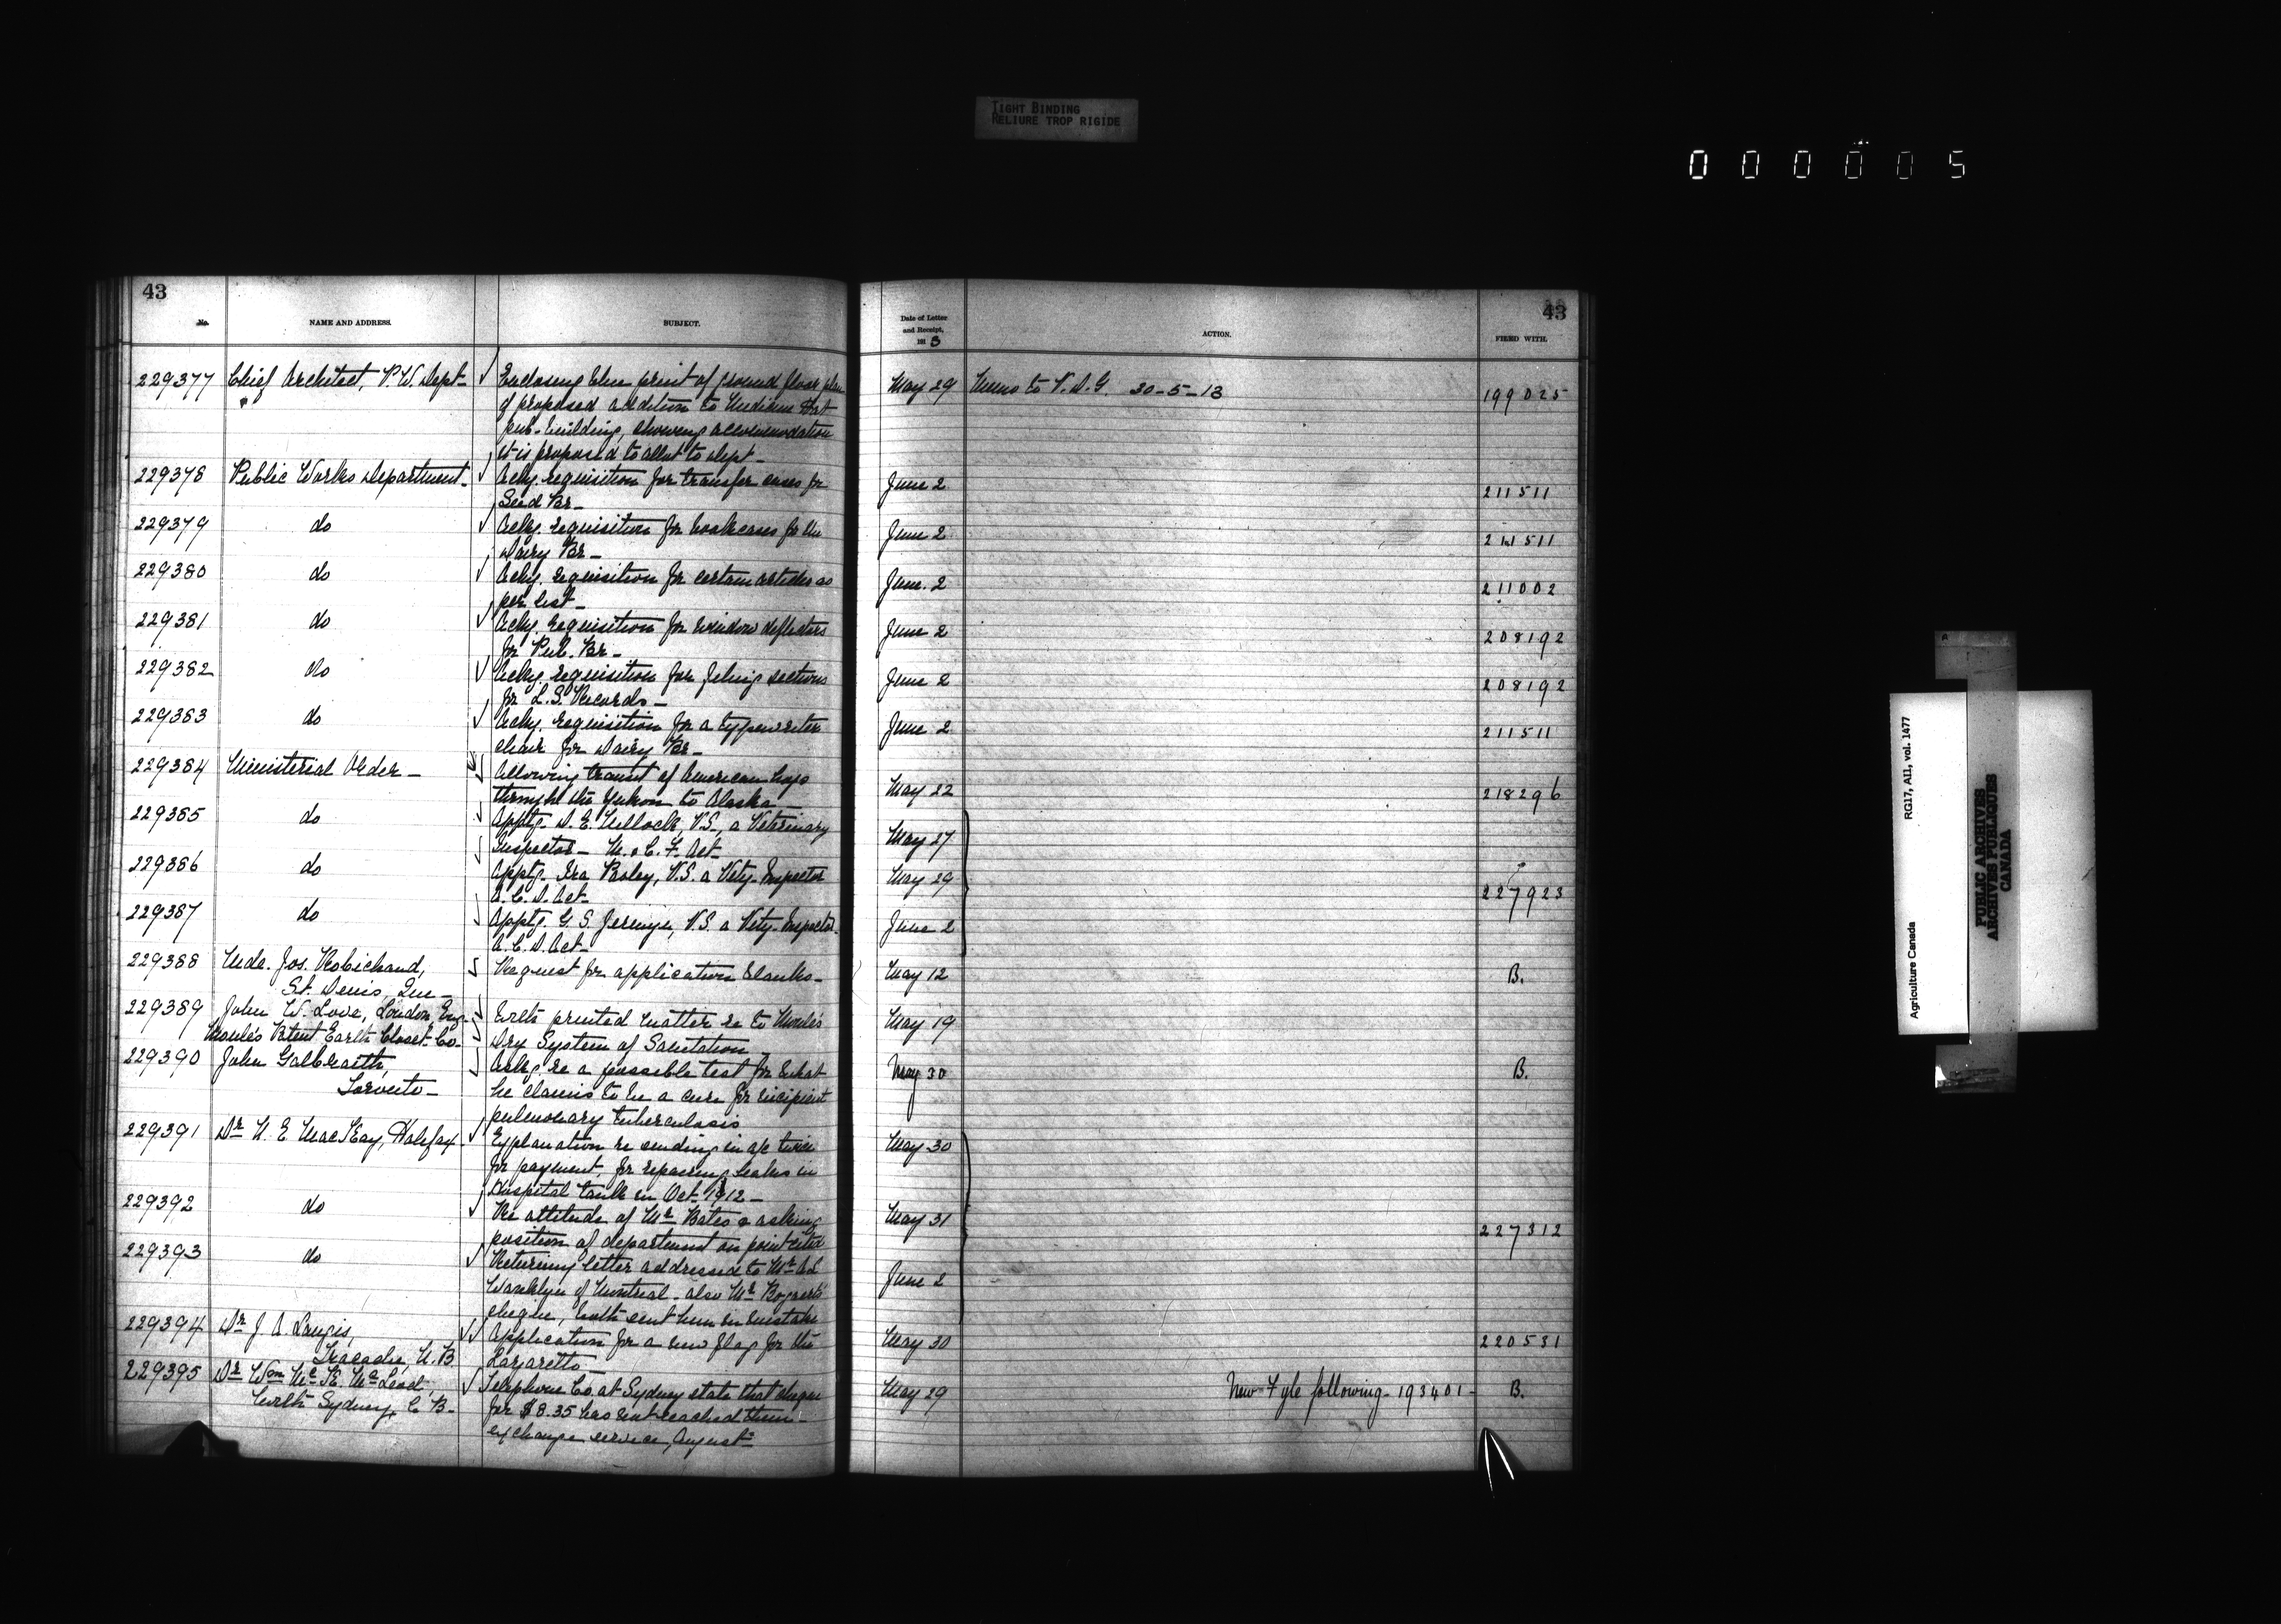 TIGHT BINDING
RELIURE TROP RIGIDE
0 0 0 0 0 5
43
No. NAME AND ADDRESS. SUBJECT.
229377 Chief Architect, P.W. Dept- Enclosing blue print of ground floor plan
of proposed addition to Medicine Hat
pub. building, showing accommodation
it is proposed to allot to dept-
229378 Public Works Department- Ackg. requisition for transfer cases for
Seed Br-
229379 do Ackg. requisition for bookcases for the
Dairy Br-
229380 do Ackg. requisition for certain articles as
per list-
229381 do Ackg. requisition for window deflectors
for Pub. Br-
229382 do Ackg. requisition for filing sections
for L.S. Records-
229383 do Ackg. requisition for a typewriter
chair for Dairy Br-
229384 Ministerial Order- Allowing transit of American hogs
through the Yukon to Alaska-
229385 do Apptg. D. E. V.S., a Veterinary
Inspector- M. & C. F. Act-
229386 do Apptg. Ira V.S. a Vety. Inspector
A. C. D. Act-
229387 do Apptg. G. S. V.S. a Vety. Inspector-
A. C. D. Act-
229388 Mde. Jos. Robichaud, Request for application blanks-
St. Denis, Que-
229389 John W. Love, London, Eng- With printed matter re to Moule's
Moule's Patent Earth Closet Co- Dry System of Sanitation
229390 John Galbraith, Askg. re a possible test for what
Toronto- he claims to be a cure for incipient
pulmonary tuberculosis
229391 Dr N. E. MacKay, Halifax- Explanation re sending in a/c twice
for payment, for repairing leaks in
Hospital tank in Oct. 1912-
229392 do Re attitude of Mr Bates & asking
position of department on point cited
229393 do Returning letter addressed to Mr
Wanklyn of Montreal- also Mr
cheque, both sent him in mistake
229394 Dr J A Langis, Application for a new flag for the
Tracadie, N.B Lazaretto
229395 Dr Wm Mc K. McLeod, Telephone Co. at Sydney state that cheque
North Sydney, C. B- for $8.35 has not reached them-
exchange service, August-
43
Date of Letter
and Receipt,
1913 ACTION. FILED WITH.
May 29 Memo to V.D.G. 30-5-13 199025
June 2 211511
June 2 211511
June 2 211002
June 2 208192
June 2 208192
June 2 211511
May 22 218296
May 27
May 29 227923
June 2
May 12 B.
May 19
May 30 B.
May 30
May 31 227312
June 2
May 30 220531
May 29 New Fyle following- 193401- B.
Agriculture Canada RG17, AII, vol. 1477
PUBLIC ARCHIVES
ARCHIVES PUBLIQUES
CANADA